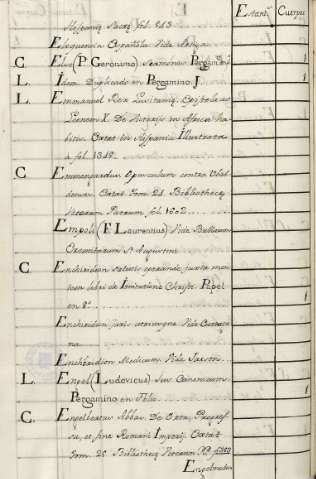 Estant.ᵉ Cuerpo
Hispaniæ Illustr. fol. 213
Eloquencia Española Vide Artiga
C. Elso (P. Geronimo) Sermones Pergam.º 1
L. Idem Duplicado en Pergamino J. 1
L. Emmanuel Rex Lusitaniæ, Epistola ad
Leonem X. De Victoriis in Africa ha-
bitis. Extat in Hispania Illustrata
a fol. 1312.
C. Emmengardus Opusculum contra Vlal-
denses. Extat Tom. 24. Bibliothecæ
veterum Patrum fol. 1602
Empoli (F. Laurentius) Vide Bullarium
Eremitarum S. Augustini
C. Enchiridion salutis
libri de Imitatione Christi Papel
en 8.º 1
Enchiridion Juris utriusque Vide
na
Enchiridion Medicum Vide
L. Engel (Ludovicus) Jus Canonicum
Pergamino en folio 1
C. Engelbertus Abbas De Ortu, Progres-
su, et fine Romani Imperij. Extat
Tom. 25. Bibliothecæ Veterum PP.
Engelbertus